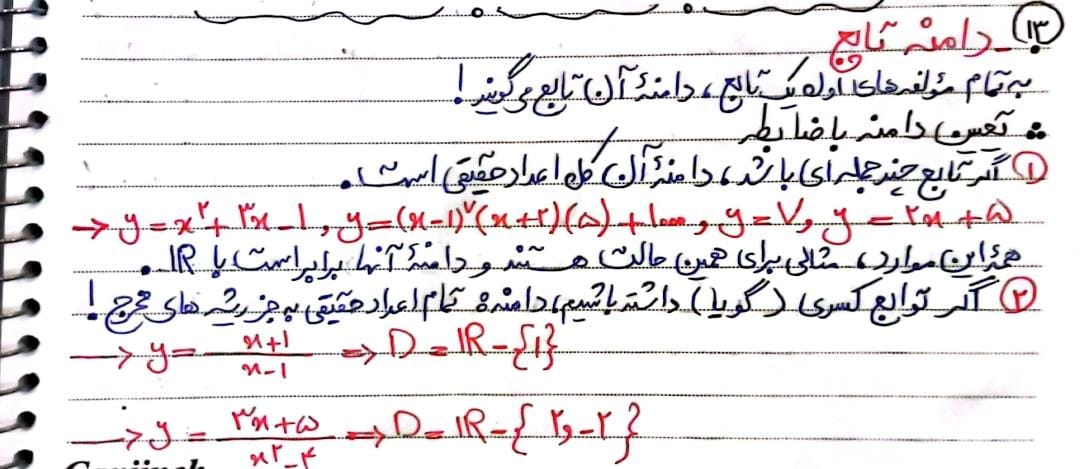 ۱۳_ دامنه تابع
به تمام مؤلفه‌های اوله یک تابع، دامنهٔ آن تابع می‌گویند!
تعیین دامنه با ضابطه
① اگر تابع چند جمله‌ای باشد، دامنهٔ آن کل اعداد حقیقی است.
→ y = x² + ۳x − ۱ , y = (x−۱)⁷(x+۲)(۵) + ۱۰۰۰ , y = ۷ , y = ۲x + ۵
همهٔ این موارد، مثالی برای همین حالت هستند و دامنهٔ آنها برابر است با IR.
② اگر توابع کسری (گویا) داشته باشیم، دامنه تمام اعداد حقیقی به جز ریشه‌های مخرج!
→ y = (x+۱)/(x−۱) ⇒ D = IR − {۱}
→ y = (۳x+۵)/(x²−۴) ⇒ D = IR − {۲ و −۲}